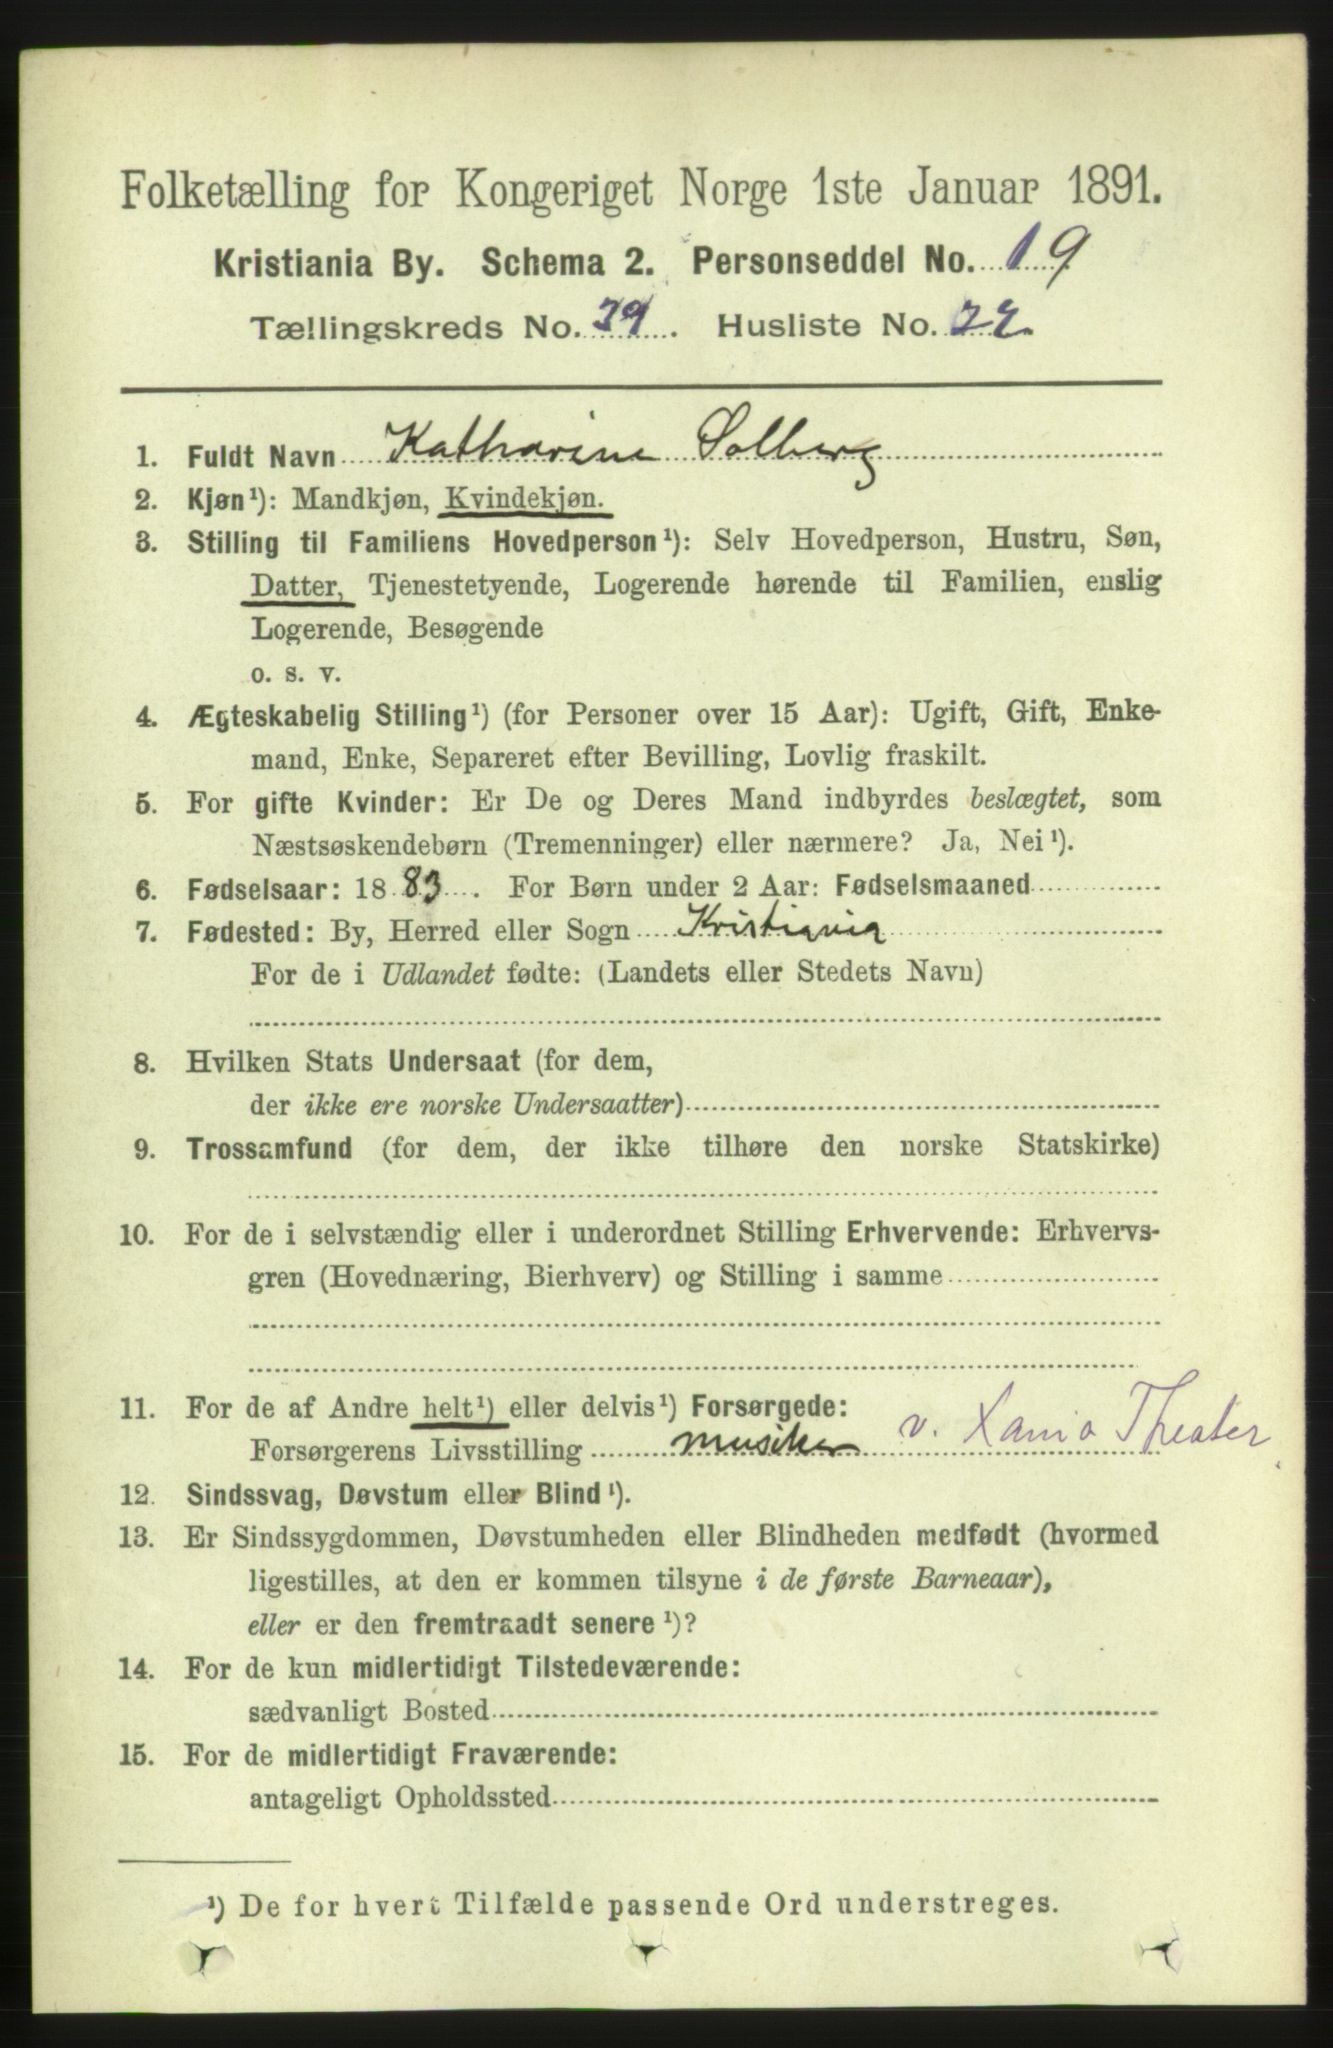 Folketælling for Kongeriget Norge 1ste Januar 1891.
Kristiania By. Schema 2. Personseddel No. 19
Tællingskreds No. 39. Husliste No.
1. Fuldt Navn Katharine Solberg
2. Kjøn¹): Mandkjøn, Kvindekjøn.
3. Stilling til Familiens Hovedperson¹): Selv Hovedperson, Hustru, Søn,
Datter, Tjenestetyende, Logerende hørende til Familien, enslig
Logerende, Besøgende
o. s. v.
4. Ægteskabelig Stilling¹) (for Personer over 15 Aar): Ugift, Gift, Enke-
mand, Enke, Separeret efter Bevilling, Lovlig fraskilt.
5. For gifte Kvinder: Er De og Deres Mand indbyrdes beslægtet, som
Næstsøskendebørn (Tremenninger) eller nærmere? Ja, Nei¹).
6. Fødselsaar: 1883. For Børn under 2 Aar: Fødselsmaaned
7. Fødested: By, Herred eller Sogn Kristiania
For de i Udlandet fødte: (Landets eller Stedets Navn)
8. Hvilken Stats Undersaat (for dem,
der ikke ere norske Undersaatter)
9. Trossamfund (for dem, der ikke tilhøre den norske Statskirke)
10. For de i selvstændig eller i underordnet Stilling Erhvervende: Erhvervs-
gren (Hovednæring, Bierhverv) og Stilling i samme
11. For de af Andre helt¹) eller delvis¹) Forsørgede:
Forsørgerens Livsstilling musiker v. Xania Theater
12. Sindssvag, Døvstum eller Blind¹).
13. Er Sindssygdommen, Døvstumheden eller Blindheden medfødt (hvormed
ligestilles, at den er kommen tilsyne i de første Barneaar),
eller er den fremtraadt senere¹)?
14. For de kun midlertidigt Tilstedeværende:
sædvanligt Bosted
15. For de midlertidigt Fraværende:
antageligt Opholdssted
¹) De for hvert Tilfælde passende Ord understreges.